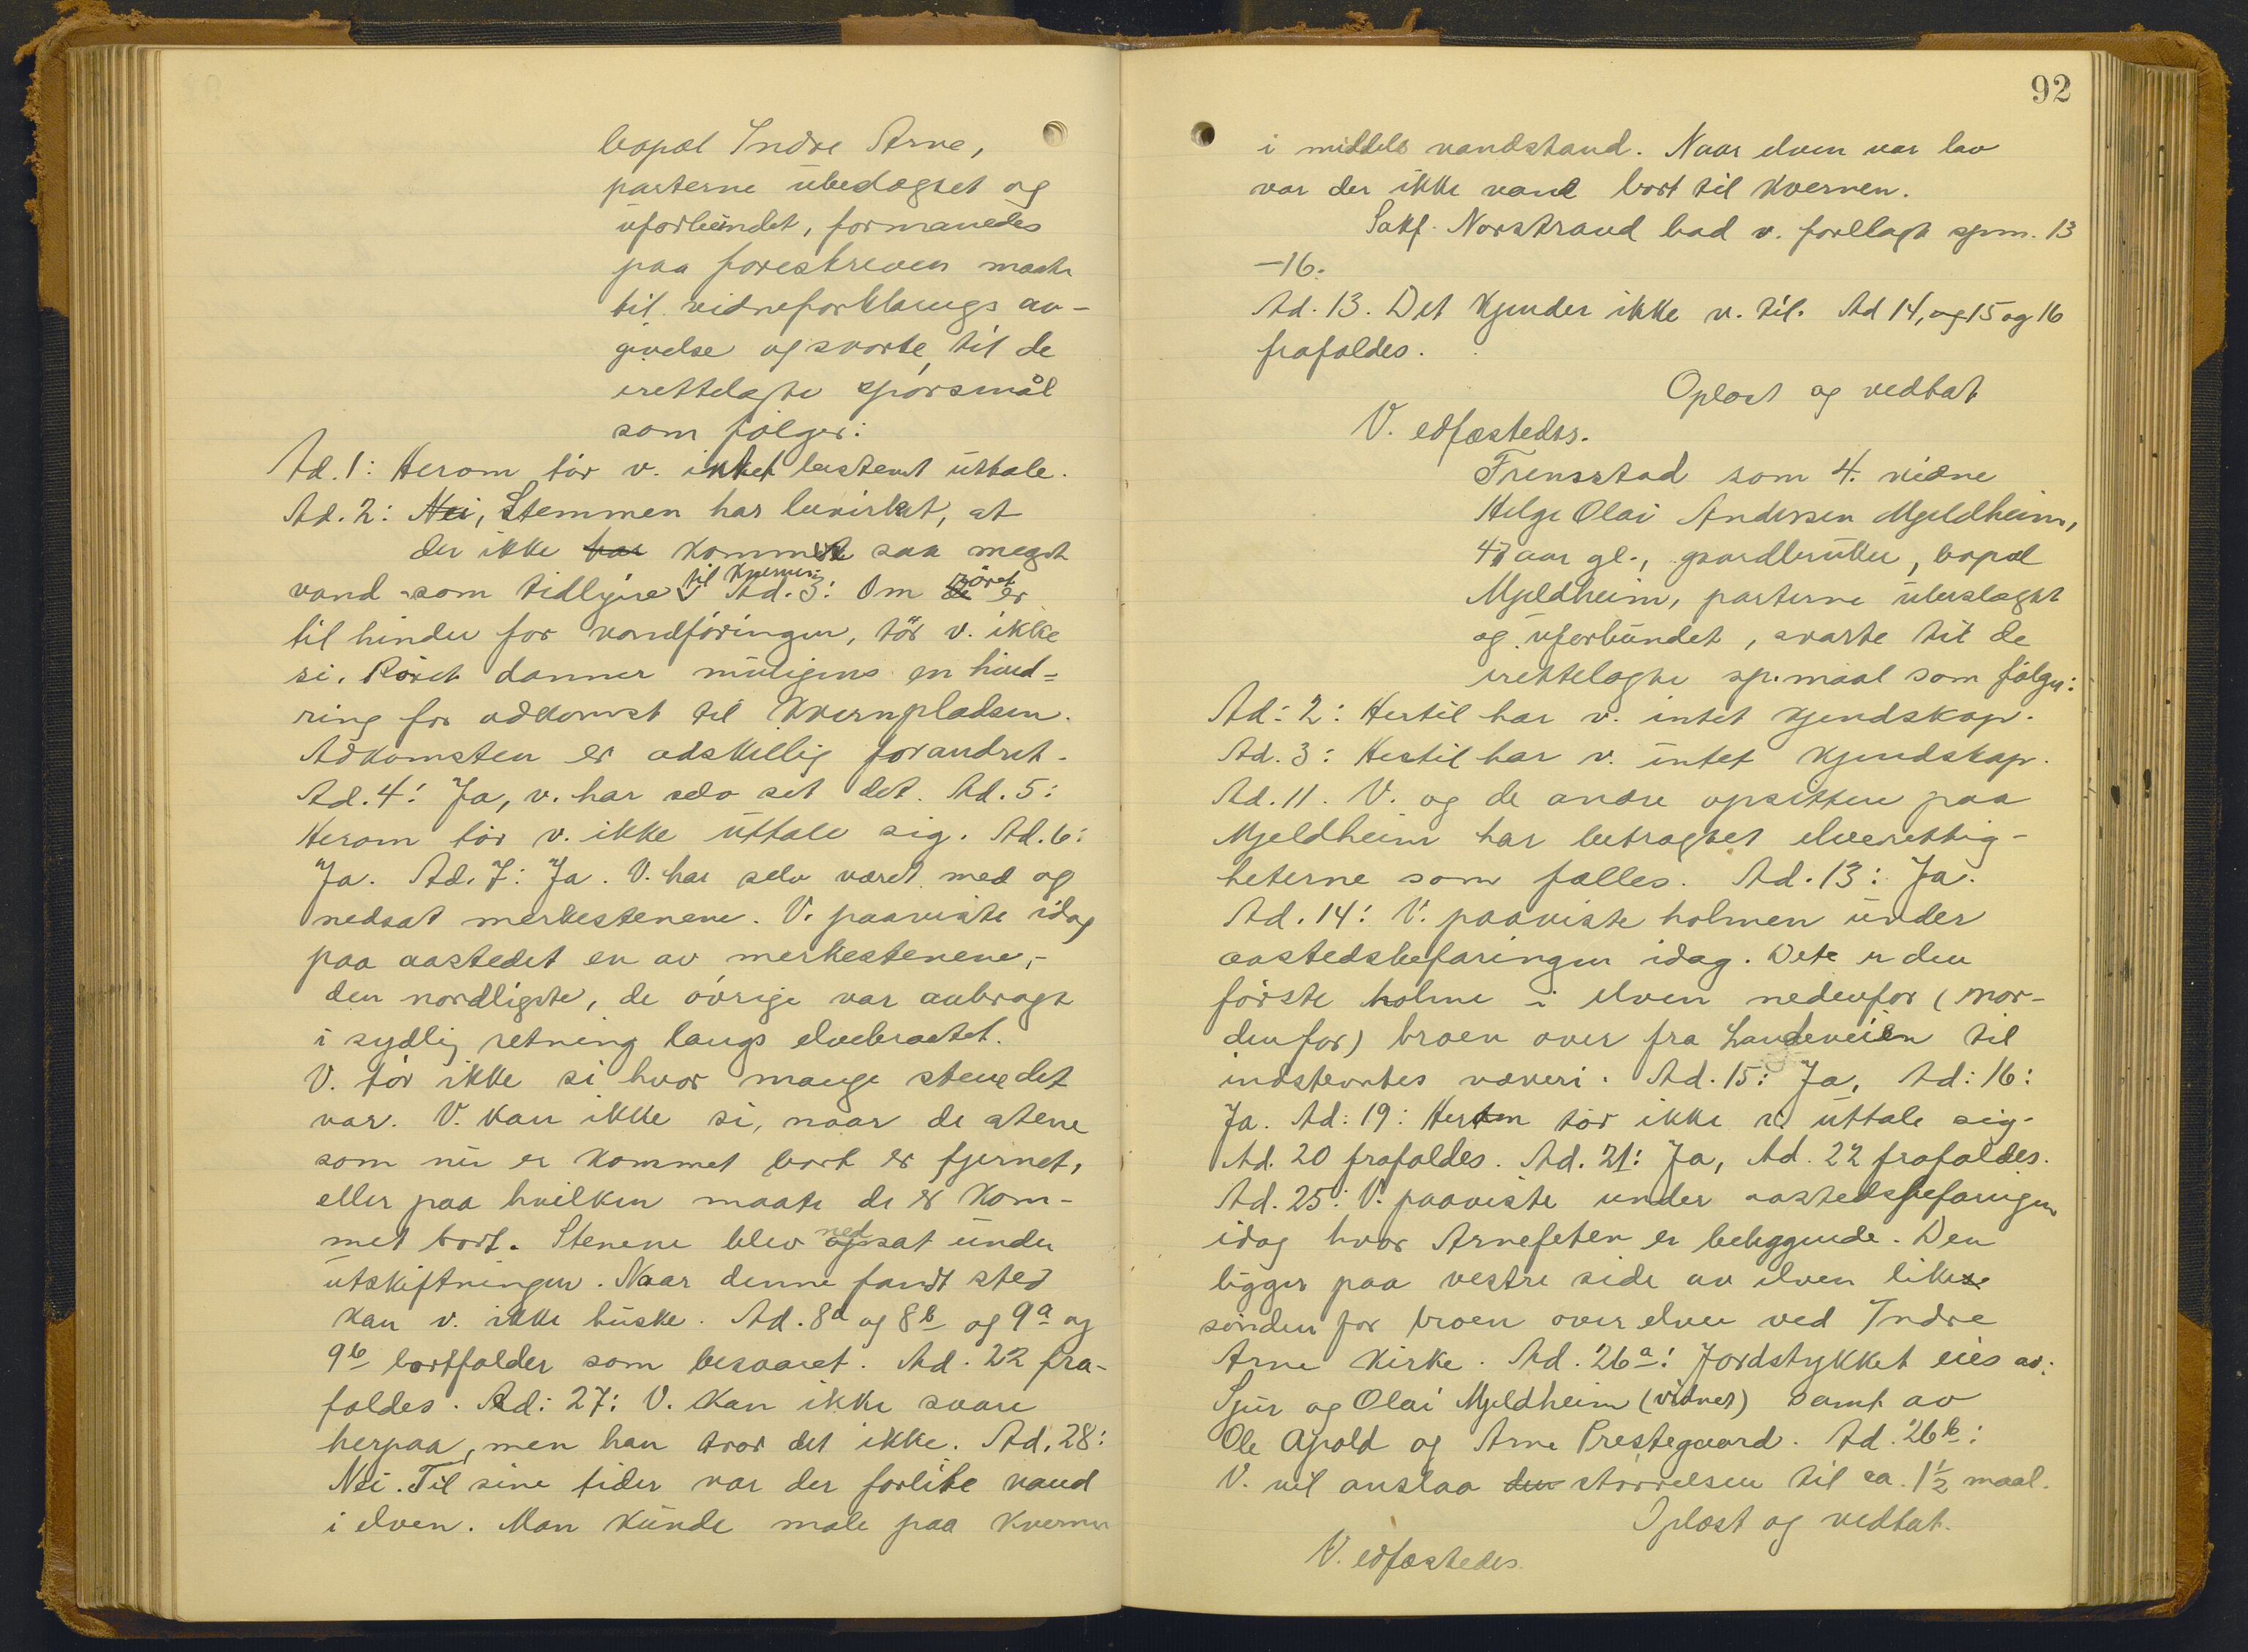 bopæl Indre Arne,
parterne ubeslægtet og
uforbundet, formanedes
paa foreskreven maate
til vidneforklarings av-
givelse og svarte til de
irettelagte spörsmål
som fölger:
Ad. 1: Herom tör v. ikke bestemt uttale.
Ad. 2: Nei, Stemmen har bevirket, at
der ikke har kommet saa meget
vand som tidligere til Kvernen. Ad. 3: Om röret er
til hinder for vandföringen, tör v. ikke
si. Röret danner muligens en hind-
ring for adkomst til Kvernpladsen.
Adkomsten er adskillig forandret.
Ad. 4: Ja, v. har selv set det. Ad. 5:
Herom tör v. ikke uttale sig. Ad. 6:
Ja. Ad. 7: Ja. V. har selv været med og
nedsat merkestenene. V. paaviste idag
paa aastedet en av merkestenene,-
den nordligste, de övrige var anbragt
i sydlig retning langs elvebraatet.
V. tör ikke si hvor mange stene det
var. V. kan ikke si, naar de stene
som nu er kommet bort er fjernet,
eller paa hvilken maate de er kom-
met bort. Stenene blev opsat ned under
utskiftningen. Naar denne fandt sted
kan v. ikke huske. Ad. 8a og 8b og 9a og
9b bortfalder som besvaret. Ad. 22 fra-
faldes. Ad: 27: V. kan ikke svare
herpaa, men han tror det ikke. Ad. 28:
Nei. Til sine tider var der forlite vand
i elven. Man kunde male paa kvernen
92
i middels vandstand. Naar elven var lav
var der ikke vand bort til kvernen.
Sakf. Norstrand bad v. forelagt spm. 13
-16.
Ad. 13. Det kjender ikke v. til. Ad 14, og 15 og 16
frafaldes.
Oplæst og vedtat
V. edfæstedes.
Fremstod som 4. vidne
Helge Olai Andersen Mjeldheim,
47 aar gl., gaardbruker, bopæl
Mjeldheim, parterne ubeslægtet
og uforbundet, svarte til de
irettelagte sp.maal som fölger:
Ad: 2: Hertil har v. intet kjendskap.
Ad. 3: Hertil har v. intet kjendskap.
Ad. 11. V. og de andre opsittere paa
Mjeldheim har betragtet elverettig-
heterne som fælles. Ad. 13: Ja.
Ad. 14: V. paaviste holmen under
aastedsbefaringen idag. Dete er den
förste holme i elven nedenfor (nor-
denfor) broen over fra Landeveien til
indstevntes væveri. Ad. 15: Ja, Ad: 16:
Ja. Ad: 19: Herom tör ikke v. uttale sig.
Ad. 20 frafaldes. Ad. 21: Ja, Ad. 22 frafaldes.
Ad. 25: V. paaviste under aastedsbefaringen
idag hvor Arnefeten er beliggende. Den
ligger paa vestre side av elven like
sönden for broen over elven ved Indre
Arne Kirke. Ad. 26a: Jordstykket eies av:
Sjur og Olai Mjeldheim (vidnet) samt av
Ole Apold og Arne Prestegaard. Ad. 26b:
V. vil anslaa den störrelsen til ca. 1½ maal.
Oplæst og vedtat.
V. edfæstedes.